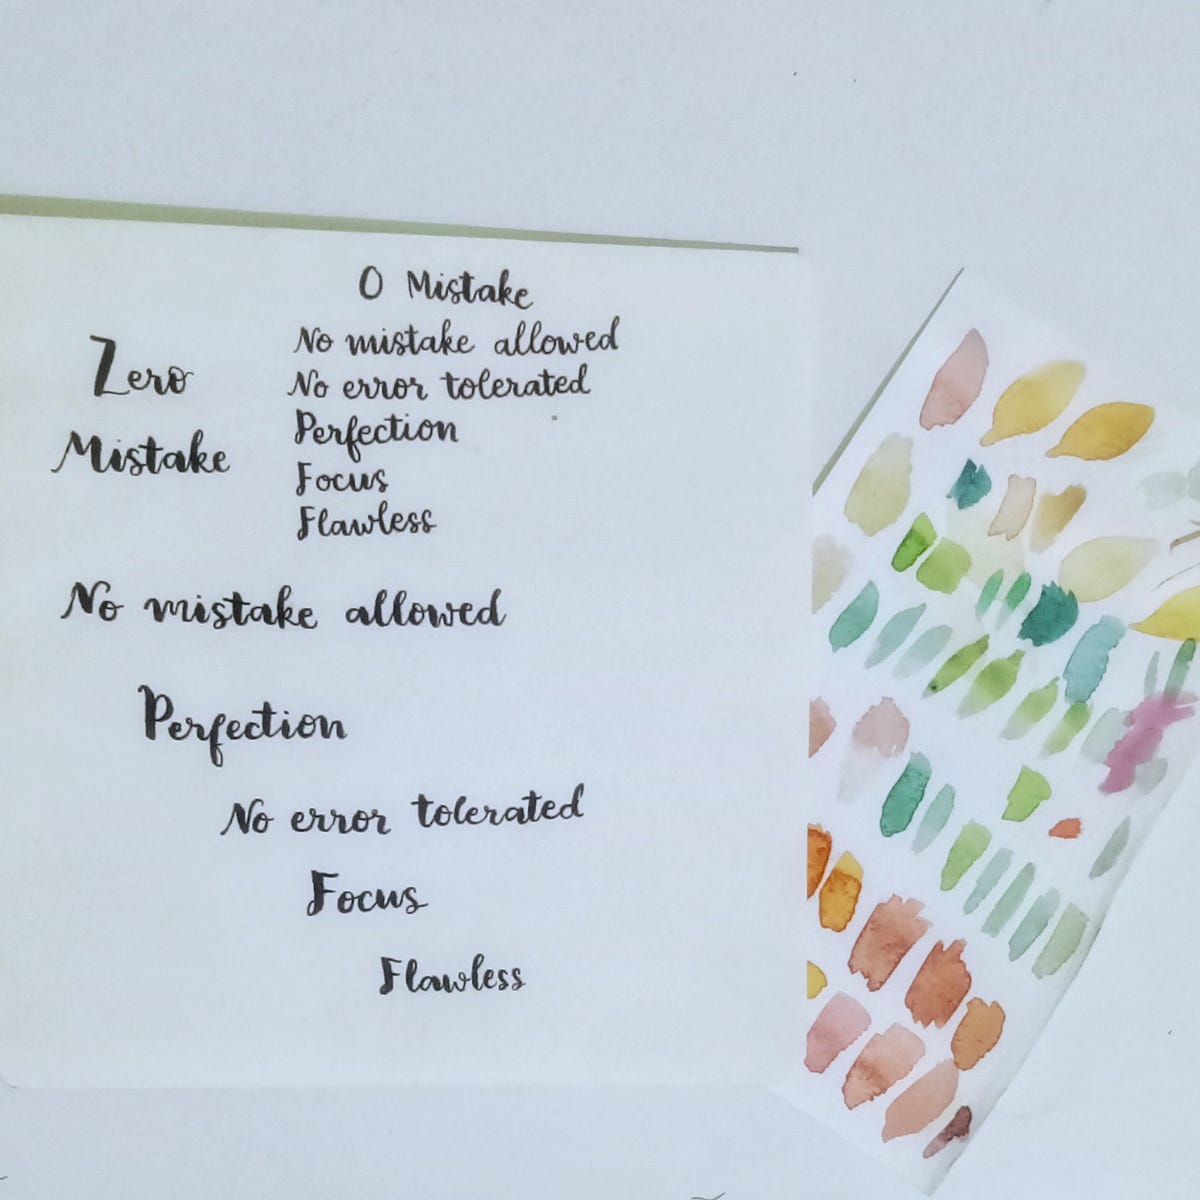 O Mistake
Zero
Mistake
No mistake allowed
No error tolerated
Perfection
Focus
Flawless
No mistake allowed
Perfection
No error tolerated
Focus
Flawless